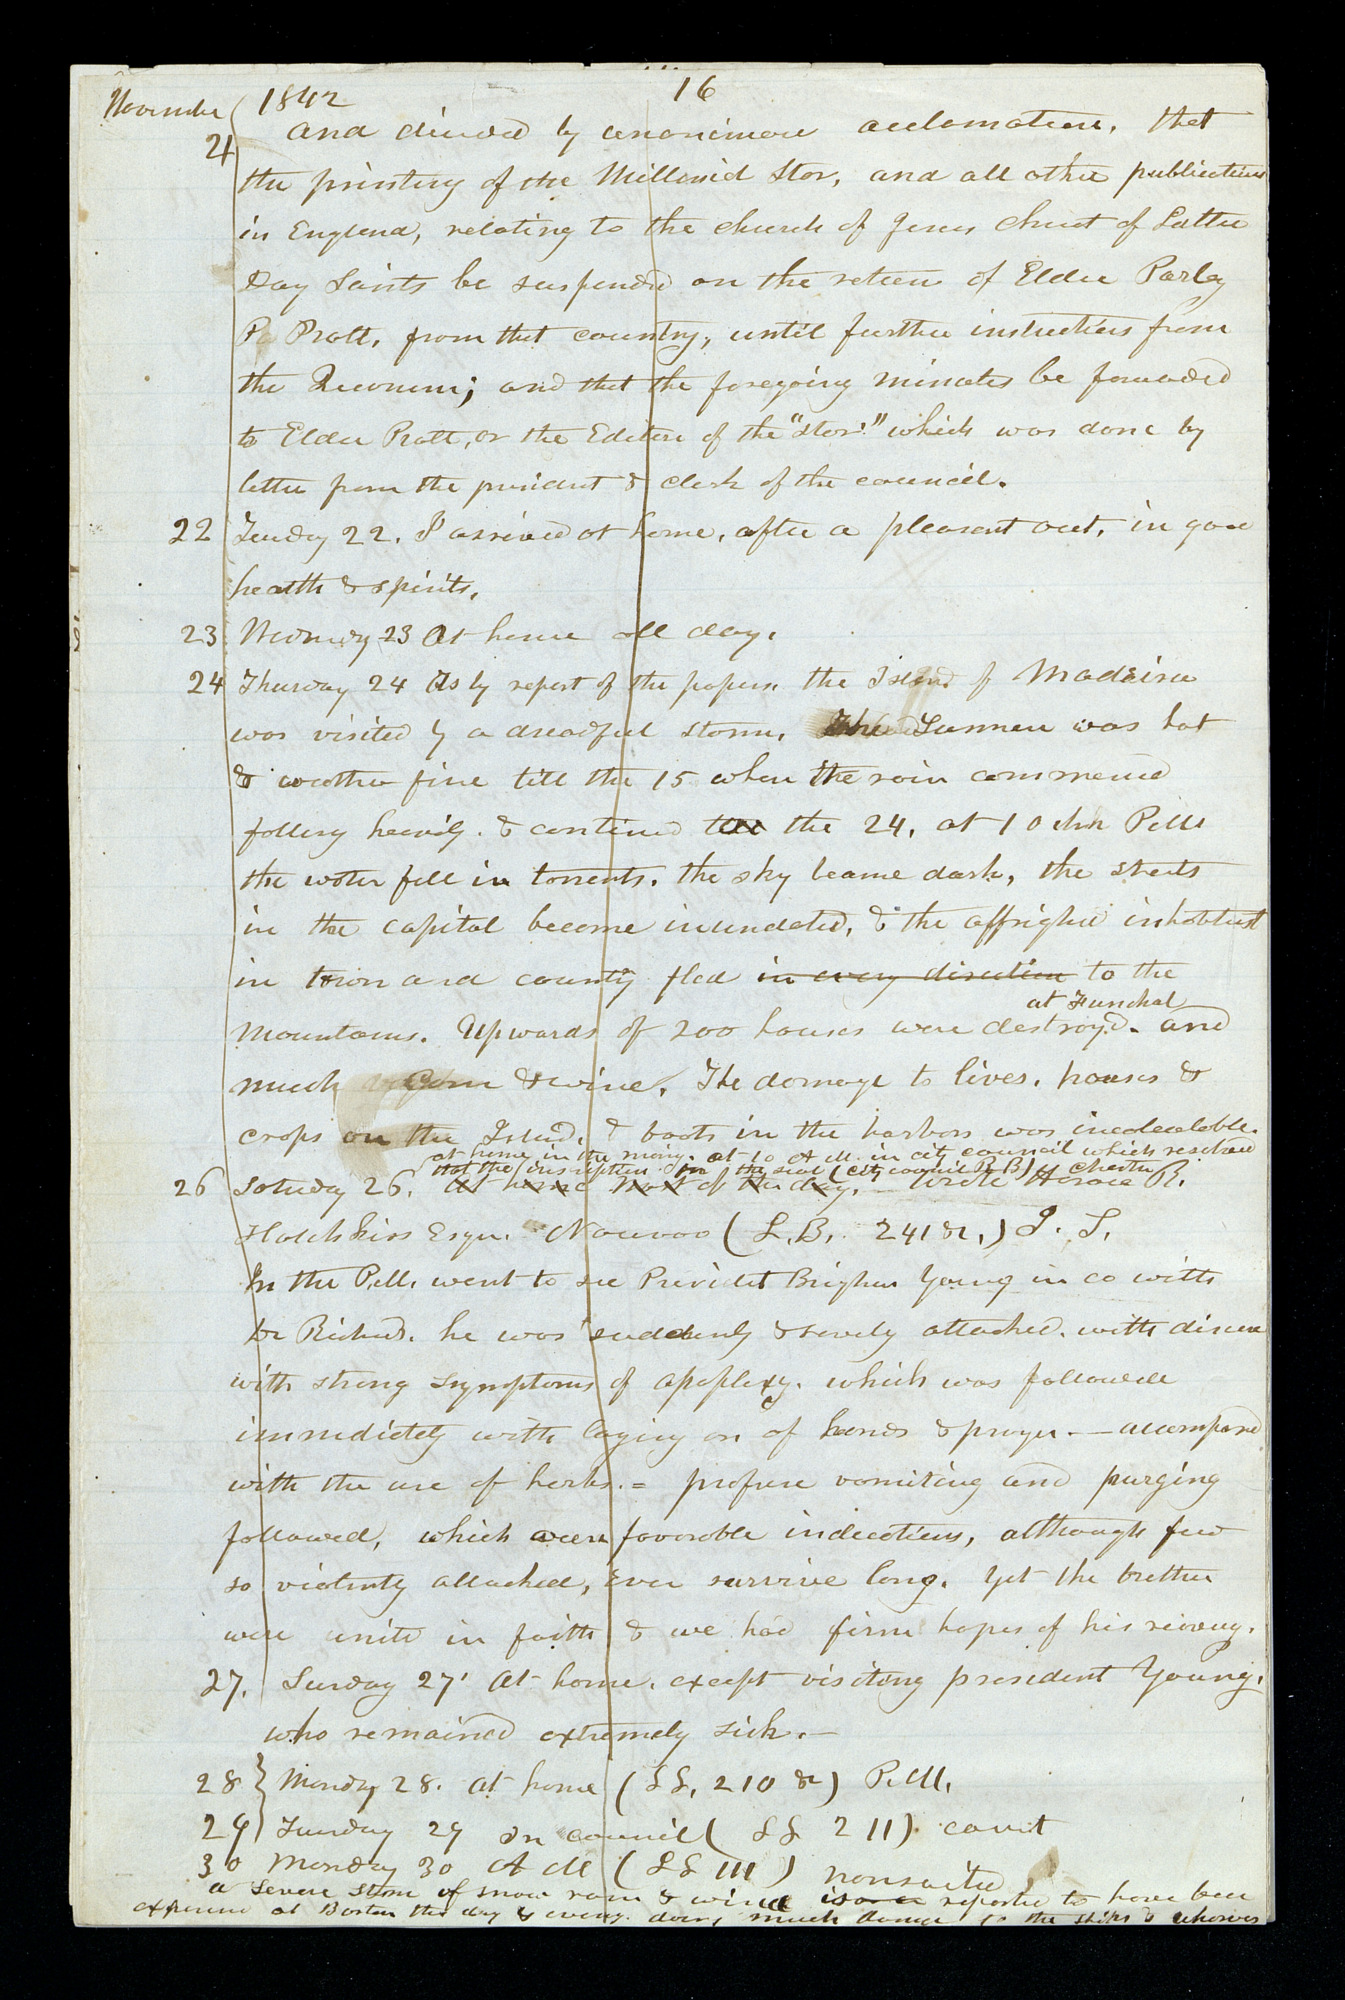 November 1842 16
21 and decided by unanimous acclamation, that
the printing of the Millenial Star, and all other publications
in England, relating to the church of Jesus Christ of Latter
Day Saints be suspended on the return of Elder Parley
P. Pratt, from that country, until further instructions from
the Quorum; and that the foregoing minutes be forwarded
to Elder Pratt, or the Editor of the "Star!" which was done by
letter from the president & clerk of the council.
22 Tuesday 22. I arrived at home, after a pleasant out, in good
health & spirits.
23 Wednesdy 23 At home all day.
24 Thursday 24 As by report of the papers. the Island of Madaira
was visited by a dreadful storm. The Summer was hot
& weather fine till the 15 when the rain commenced
falling heavily. & continued till the 24, at 1 o clock P.M
the water fell in torrents. the sky became dark, the streets
in the capital became inundated, & the affrighted inhabitants
in town and country fled in every direction to the
at Funchal
mountains. Upwards of 200 houses were destroyed. and
much Corn & wine. The damage to lives, houses &
crops on the Island, & boats in the harbors was incalculable.
at home in the morng. at 10 A M. in city council which resolved
that the inscription for the seal (city council R. B) Chester
26 Saturday 26. At home most of the day. — wrote Horace R.
Hotchkiss Esqu. Nauvoo (L.B. 241 &c.) J. S.
In the P.M. went to see President Brigham Young in co with
Dr Richards. he was suddenly & severely attacked. with disease
with strong symptoms of apoplexy. which was followed
immediately with laying on of hands & prayer. — accompanied
with the use of herbs. = profuse vomiting and purging
followed, which were favorable indications, although few
so violently attacked, ever survive long. yet the brethren
were united in faith & we had firm hopes of his recovery.
27. Sunday 27. At home. except visiting president Young.
who remained extremely sick. —
28 Monday 28. at home (SS. 210 &c) P.M.
29 Tuesday 29 In council (SS 211). court
30 Monday 30 A M (SS 111) nonsuited
a severe storm of snow rain & wind is reported to have been
experienced at Boston this day & eveng. doing much damage to the ships & wharves